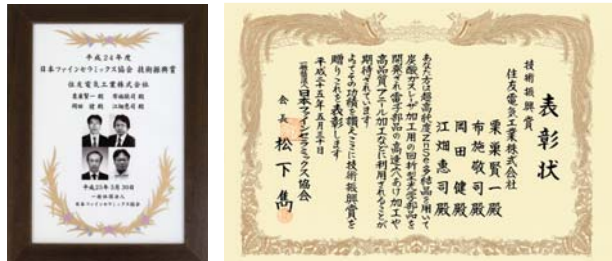 平成24年度
日本ファインセラミックス協会 技術振興賞
住友電気工業株式会社
栗巣賢一 殿 布施敬司 殿
岡田 健 殿 江畑惠司 殿
平成25年5月30日
一般社団法人
日本ファインセラミックス協会
表彰状
技術振興賞
住友電気工業株式会社
栗巣賢一殿
布施敬司殿
岡田健殿
江畑惠司殿
あなた方は超高純度ZnSe多結晶を用いて
炭酸ガスレーザ加工用の回折型光学部品を
開発され電子部品の高速穴あけ加工や
高品質アニール加工などに利用されることが
期待されています
よってその功績を讃えここに技術振興賞を
贈りこれを表彰します
平成二十五年五月三十日
一般社団法人日本ファインセラミックス協会
会長 松下雋